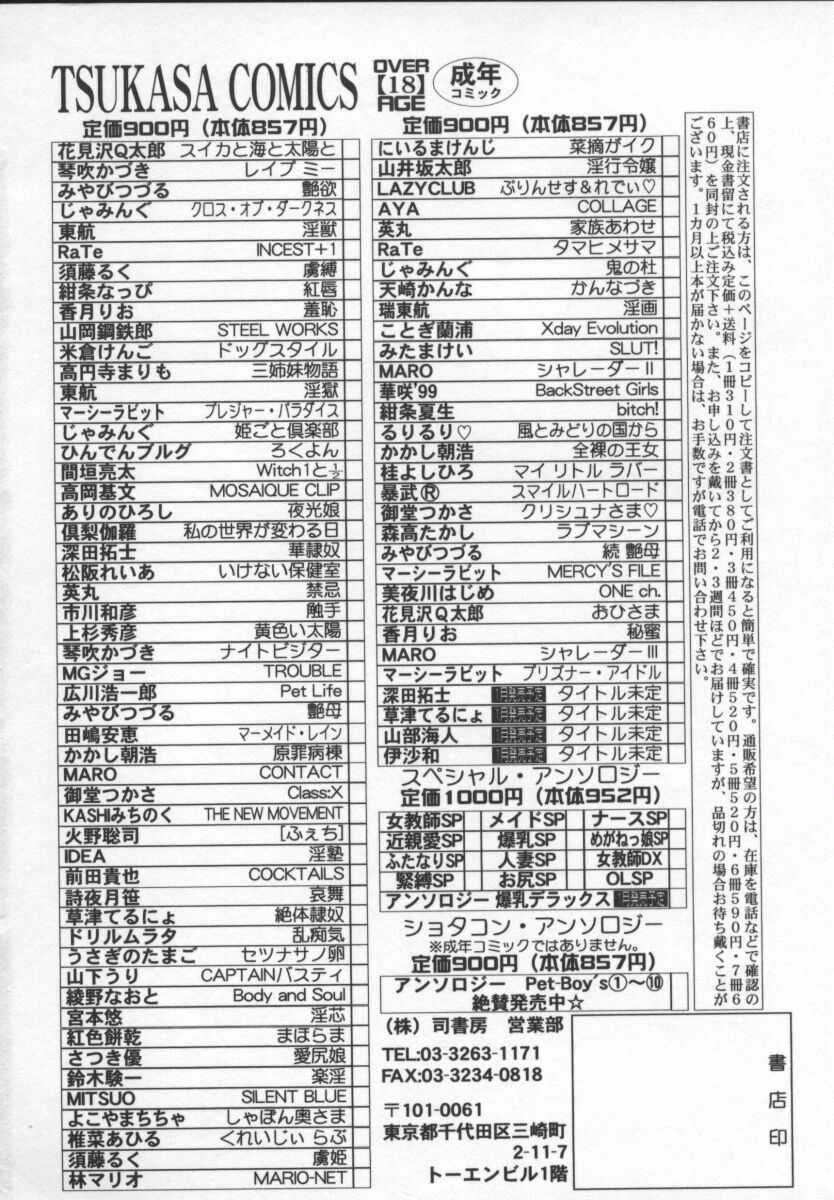 TSUKASA COMICS
OVER
【18】
AGE
成年
コミック
定価900円（本体857円）
花見沢Q太郎 スイカと海と太陽と
琴吹かづき レイプ ミー
みやびつづる 艶欲
じゃみんぐ クロス・オブ・ダークネス
東航 淫獣
RaTe INCEST+1
須藤るく 虜縛
紺条なっぴ 紅唇
香月りお 羞恥
山岡鋼鉄郎 STEEL WORKS
米倉けんご ドッグスタイル
高円寺まりも 三姉妹物語
東航 淫獄
マーシーラビット プレジャー・パラダイス
じゃみんぐ 姫ごと倶楽部
ひんでんブルグ ろくよん
間垣亮太 Witch1と½
高岡基文 MOSAIQUE CLIP
ありのひろし 夜光娘
倶梨伽羅 私の世界が変わる日
深田拓士 華隷奴
松阪れいあ いけない保健室
英丸 禁忌
市川和彦 触手
上杉秀彦 黄色い太陽
琴吹かづき ナイトビジター
MGジョー TROUBLE
広川浩一郎 Pet Life
みやびつづる 艶母
田嶋安恵 マーメイド・レイン
かかし朝浩 原罪病棟
MARO CONTACT
御堂つかさ Class:X
KASHIみちのく THE NEW MOVEMENT
火野聡司 [ふぇち]
IDEA 淫塾
前田貴也 COCKTAILS
詩夜月笹 哀舞
草津てるにょ 絶体隷奴
ドリルムラタ 乱痴気
うさぎのたまご セツナサノ卵
山下うり CAPTAINバスティ
綾野なおと Body and Soul
宮本悠 淫芯
紅色餅乾 まほらま
さつき優 愛尻娘
鈴木験一 楽淫
MITSUO SILENT BLUE
よこやまちちゃ しゃぼん奥さま
椎菜あひる くれいじぃ らぶ
須藤るく 虜姫
林マリオ MARIO-NET
定価900円（本体857円）
にいるまけんじ 菜摘がイク
山井坂太郎 淫行令嬢
LAZYCLUB ぷりんせす&れでぃ♡
AYA COLLAGE
英丸 家族あわせ
RaTe タマヒメサマ
じゃみんぐ 鬼の杜
天崎かんな かんなづき
瑞東航 淫画
ことぎ蘭浦 Xday Evolution
みたまけい SLUT!
MARO シャレーダーⅡ
華咲'99 BackStreet Girls
紺条夏生 bitch!
るりるり♡ 風とみどりの国から
かかし朝浩 全裸の王女
桂よしひろ マイ リトル ラバー
暴武Ⓡ スマイルハートロード
御堂つかさ クリシュナさま♡
森高たかし ラブマシーン
みやびつづる 続 艶母
マーシーラビット MERCY'S FILE
美夜川はじめ ONE ch.
花見沢Q太郎 おひさま
香月りお 秘蜜
MARO シャレーダーⅢ
マーシーラビット プリズナー・アイドル
深田拓士 1月発売予定 タイトル未定
草津てるにょ 1月発売予定 タイトル未定
山部海人 1月発売予定 タイトル未定
伊沙和 1月発売予定 タイトル未定
スペシャル・アンソロジー
定価1000円（本体952円）
女教師SP メイドSP ナースSP
近親愛SP 爆乳SP めがねっ娘SP
ふたなりSP 人妻SP 女教師DX
緊縛SP お尻SP OLSP
アンソロジー 爆乳デラックス 1月発売予定
ショタコン・アンソロジー
※成年コミックではありません。
定価900円（本体857円）
アンソロジー Pet-Boy's①～⑩
絶賛発売中☆
（株）司書房 営業部
TEL:03-3263-1171
FAX:03-3234-0818
〒101-0061
東京都千代田区三崎町
2-11-7
トーエンビル1階
書店に注文される方は、このページをコピーして注文書としてご利用になると簡単で確実です。通販希望の方は、在庫を電話などで確認の
上、現金書留にて税込み定価＋送料（1冊310円・2冊380円・3冊450円・4冊520円・5冊520円・6冊590円・7冊6
60円）を同封の上ご注文下さい。また、お申し込みを戴いてから2・3週間ほどでお届けしていますが、品切れの場合お待ち戴くことが
ございます。1カ月以上本が届かない場合は、お手数ですが電話でお問い合わせ下さい。
書店印